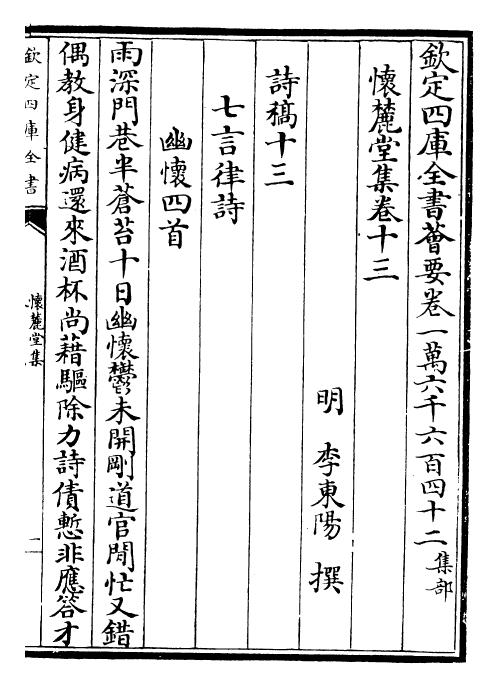 欽定四庫全書薈要卷一萬六千六百四十二集部
懷麓堂集卷十三
明 李東陽 撰
詩稿十三
七言律詩
幽懷四首
雨深門巷半蒼苔十日幽懷鬱未開剛道官閒忙又錯
偶教身健病還來酒杯尚藉驅除力詩債慙非應答才
欽定四庫全書
懷麓堂集
一